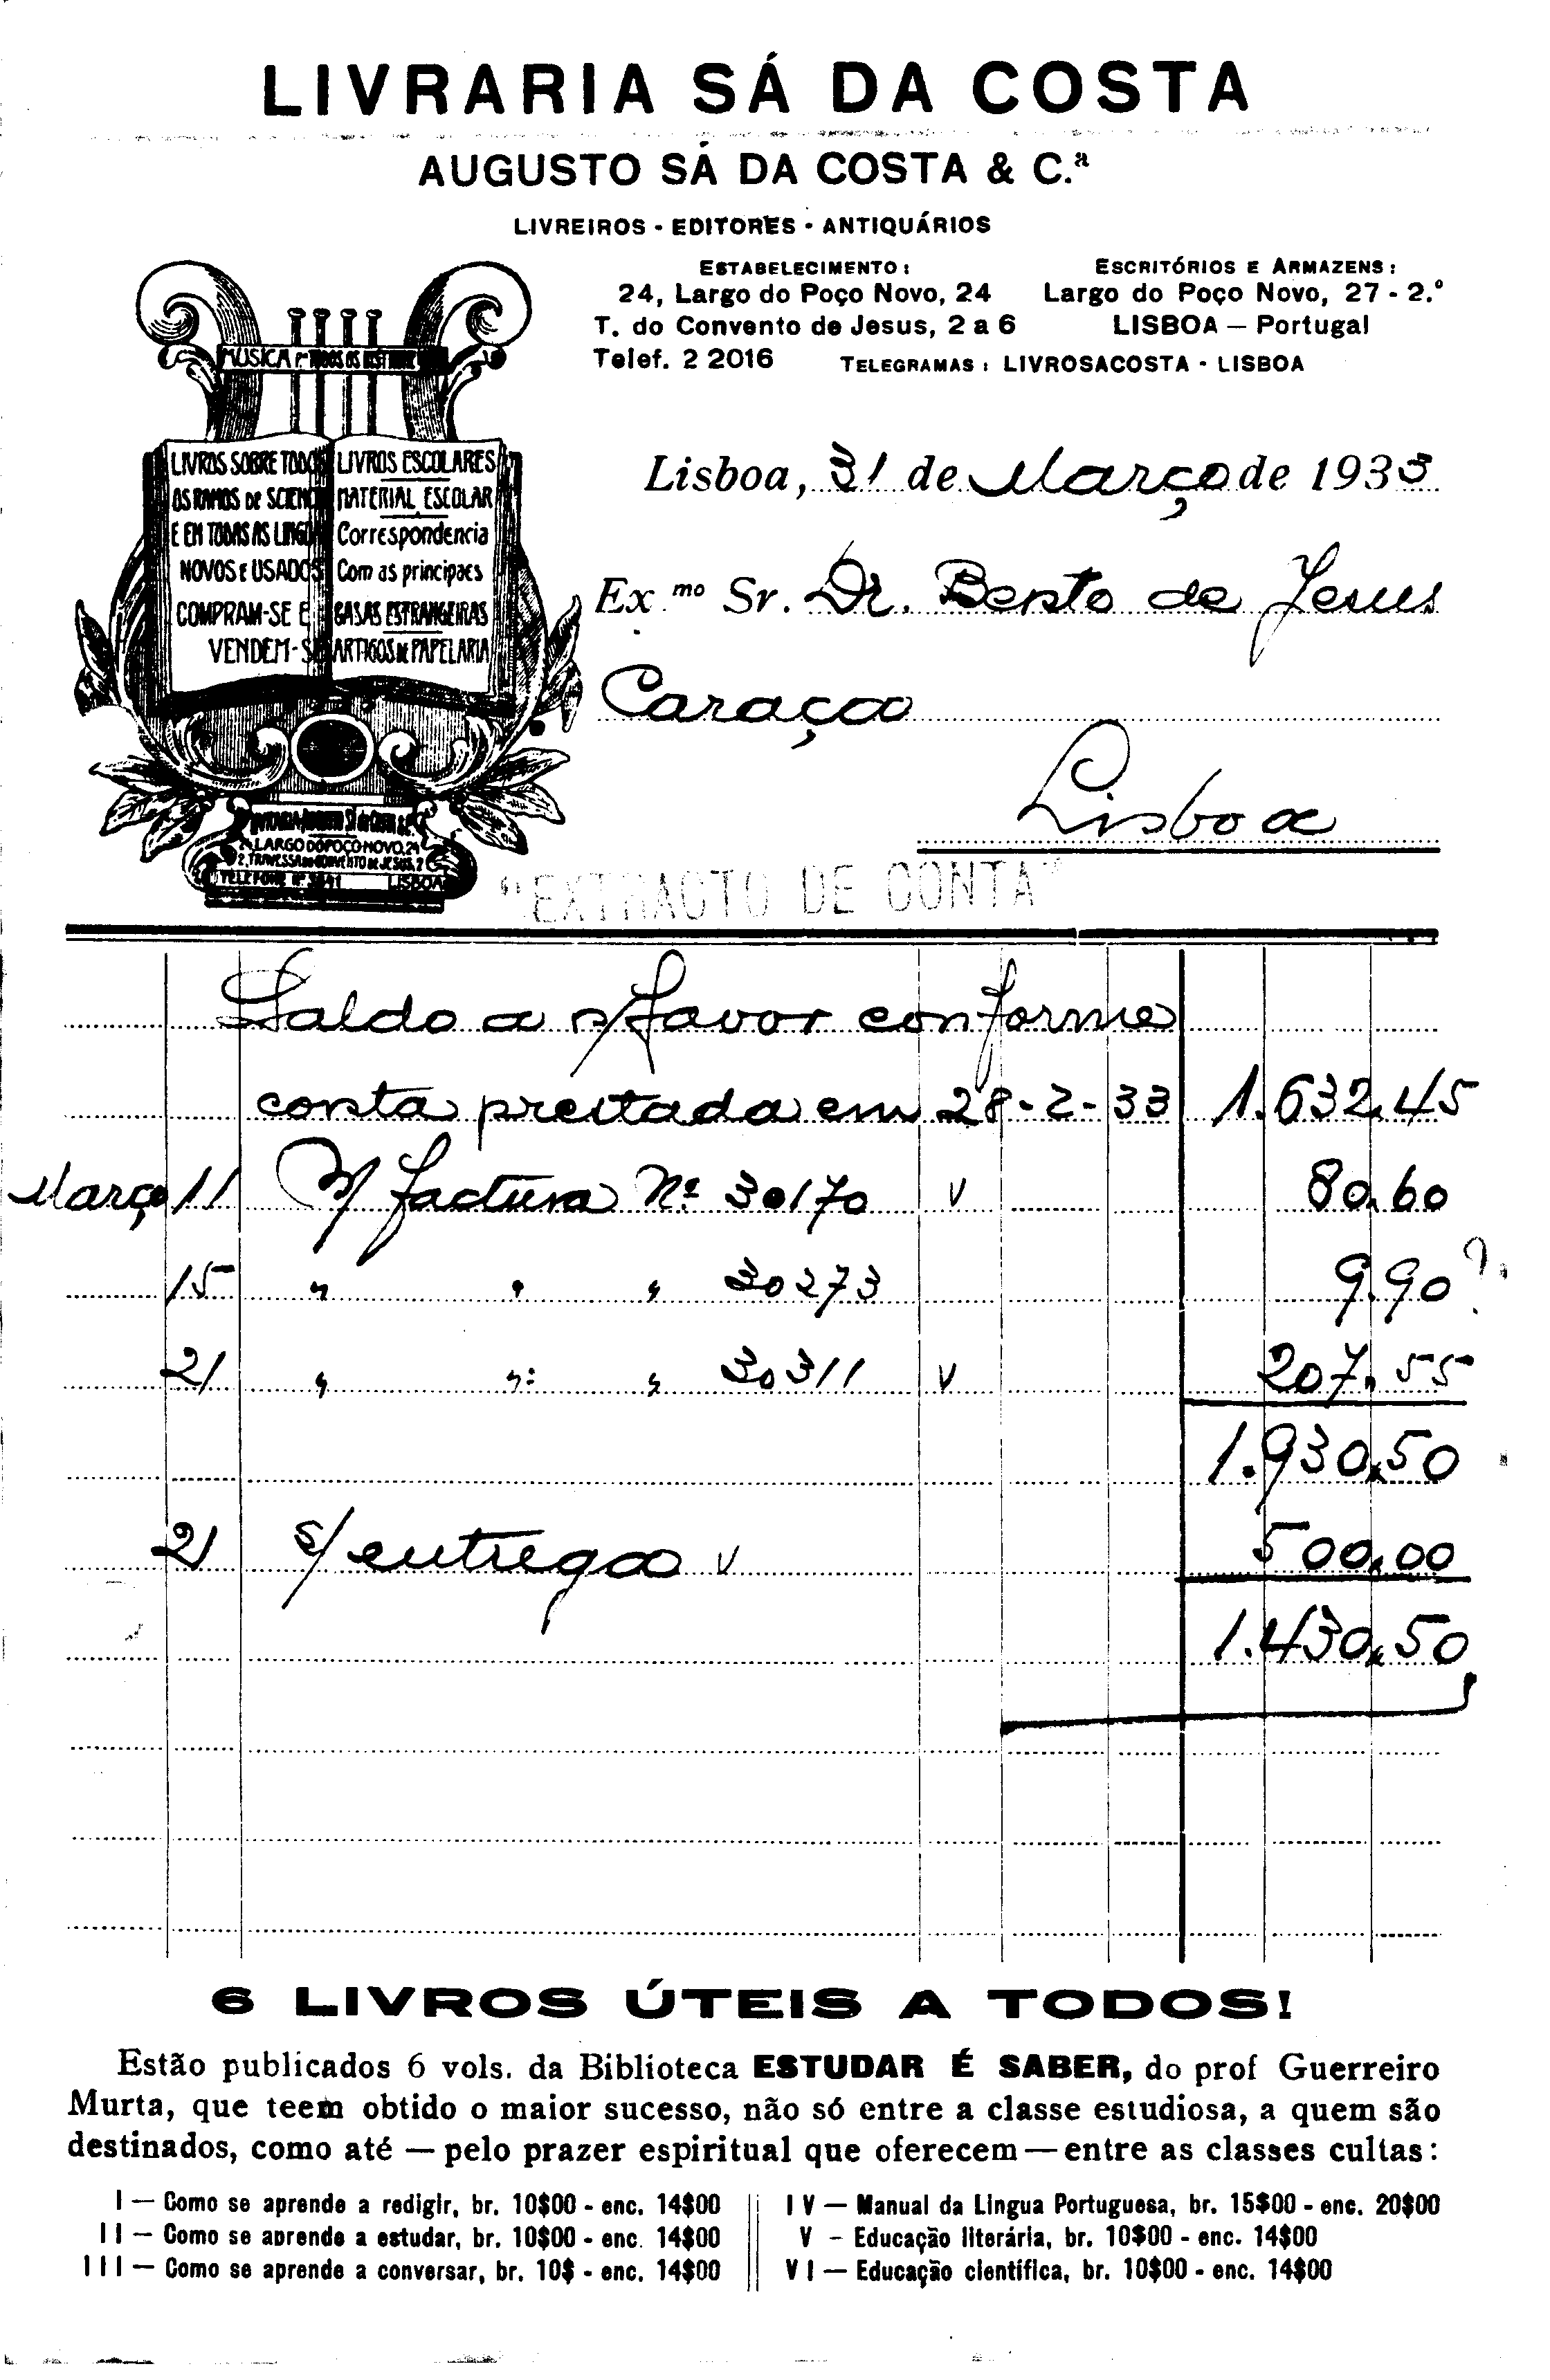 LIVRARIA SÁ DA COSTA
AUGUSTO SÁ DA COSTA & C.ª
LIVREIROS - EDITORES - ANTIQUÁRIOS
ESTABELECIMENTO :
24, Largo do Poço Novo, 24
T. do Convento de Jesus, 2 a 6
Telef. 2 2016
ESCRITÓRIOS E ARMAZENS :
Largo do Poço Novo, 27 - 2.º
LISBOA — Portugal
TELEGRAMAS : LIVROSACOSTA - LISBOA
MUSICA
LIVROS SOBRE TODOS
OS RAMOS DE SCIENC
E EM TODAS AS LINGU
NOVOS E USADOS
COMPRAM-SE E
VENDEM-SE
LIVROS ESCOLARES
MATERIAL ESCOLAR
Correspondencia
Com as principaes
CASAS ESTRANGEIRAS
ARTIGOS DE PAPELARIA
LARGO DO POÇO NOVO, 24
2, TRAVESSA DO CONVENTO DE JESUS, 2
TELEFONE Nº LISBOA
Lisboa, 31 de Março de 1933
Ex.mo Sr. Dr. Bento de Jesus
Caraça
Lisboa
"EXTRACTO DE CONTA"
Saldo a n/favor conforme
conta prestada em 28-2-33 1.632,45
Março 11 N/ factura Nº 30170 v 80,60
15 " " " 30273 9,90 ?
21 " " " 30311 v 207,55
1.930,50
21 s/ entrega v 500,00
1.430,50
6 LIVROS ÚTEIS A TODOS!
Estão publicados 6 vols. da Biblioteca ESTUDAR É SABER, do prof Guerreiro
Murta, que teem obtido o maior sucesso, não só entre a classe estudiosa, a quem são
destinados, como até — pelo prazer espiritual que oferecem — entre as classes cultas:
I — Como se aprende a redigir, br. 10$00 - enc. 14$00
II — Como se aprende a estudar, br. 10$00 - enc. 14$00
III — Como se aprende a conversar, br. 10$ - enc. 14$00
IV — Manual da Lingua Portuguesa, br. 15$00 - enc. 20$00
V - Educação literária, br. 10$00 - enc. 14$00
VI — Educação cientifica, br. 10$00 - enc. 14$00